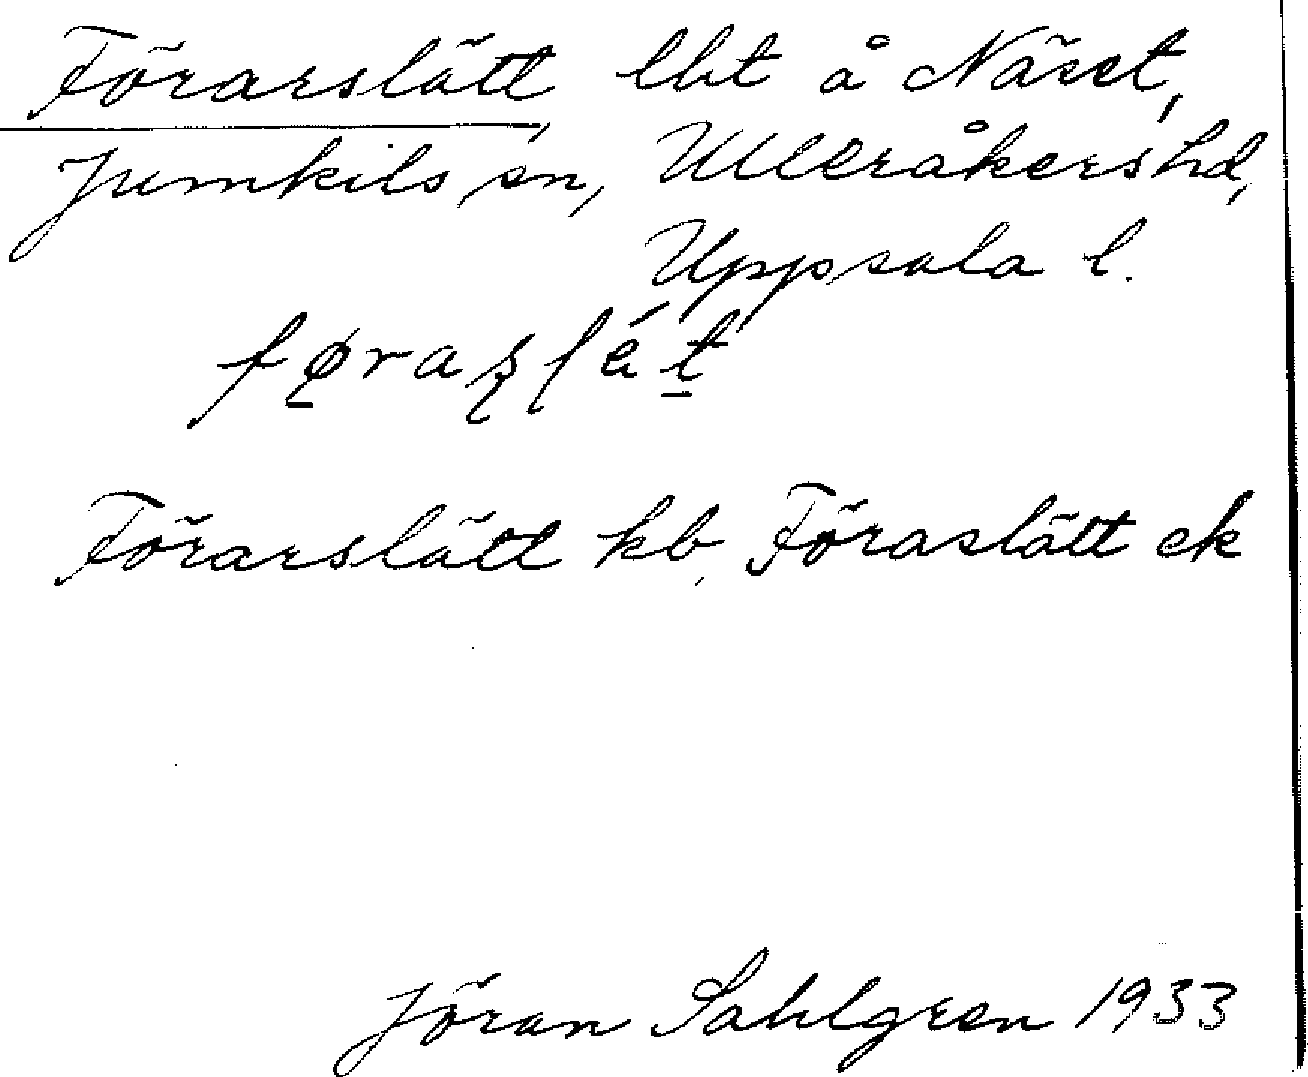 Förarslätt, lht å Näset,
Jumkils sn, Ulleråkers hd,
Uppsala l.
Förarslätt kb, Föraslätt ek
Jöran Sahlgren 1933